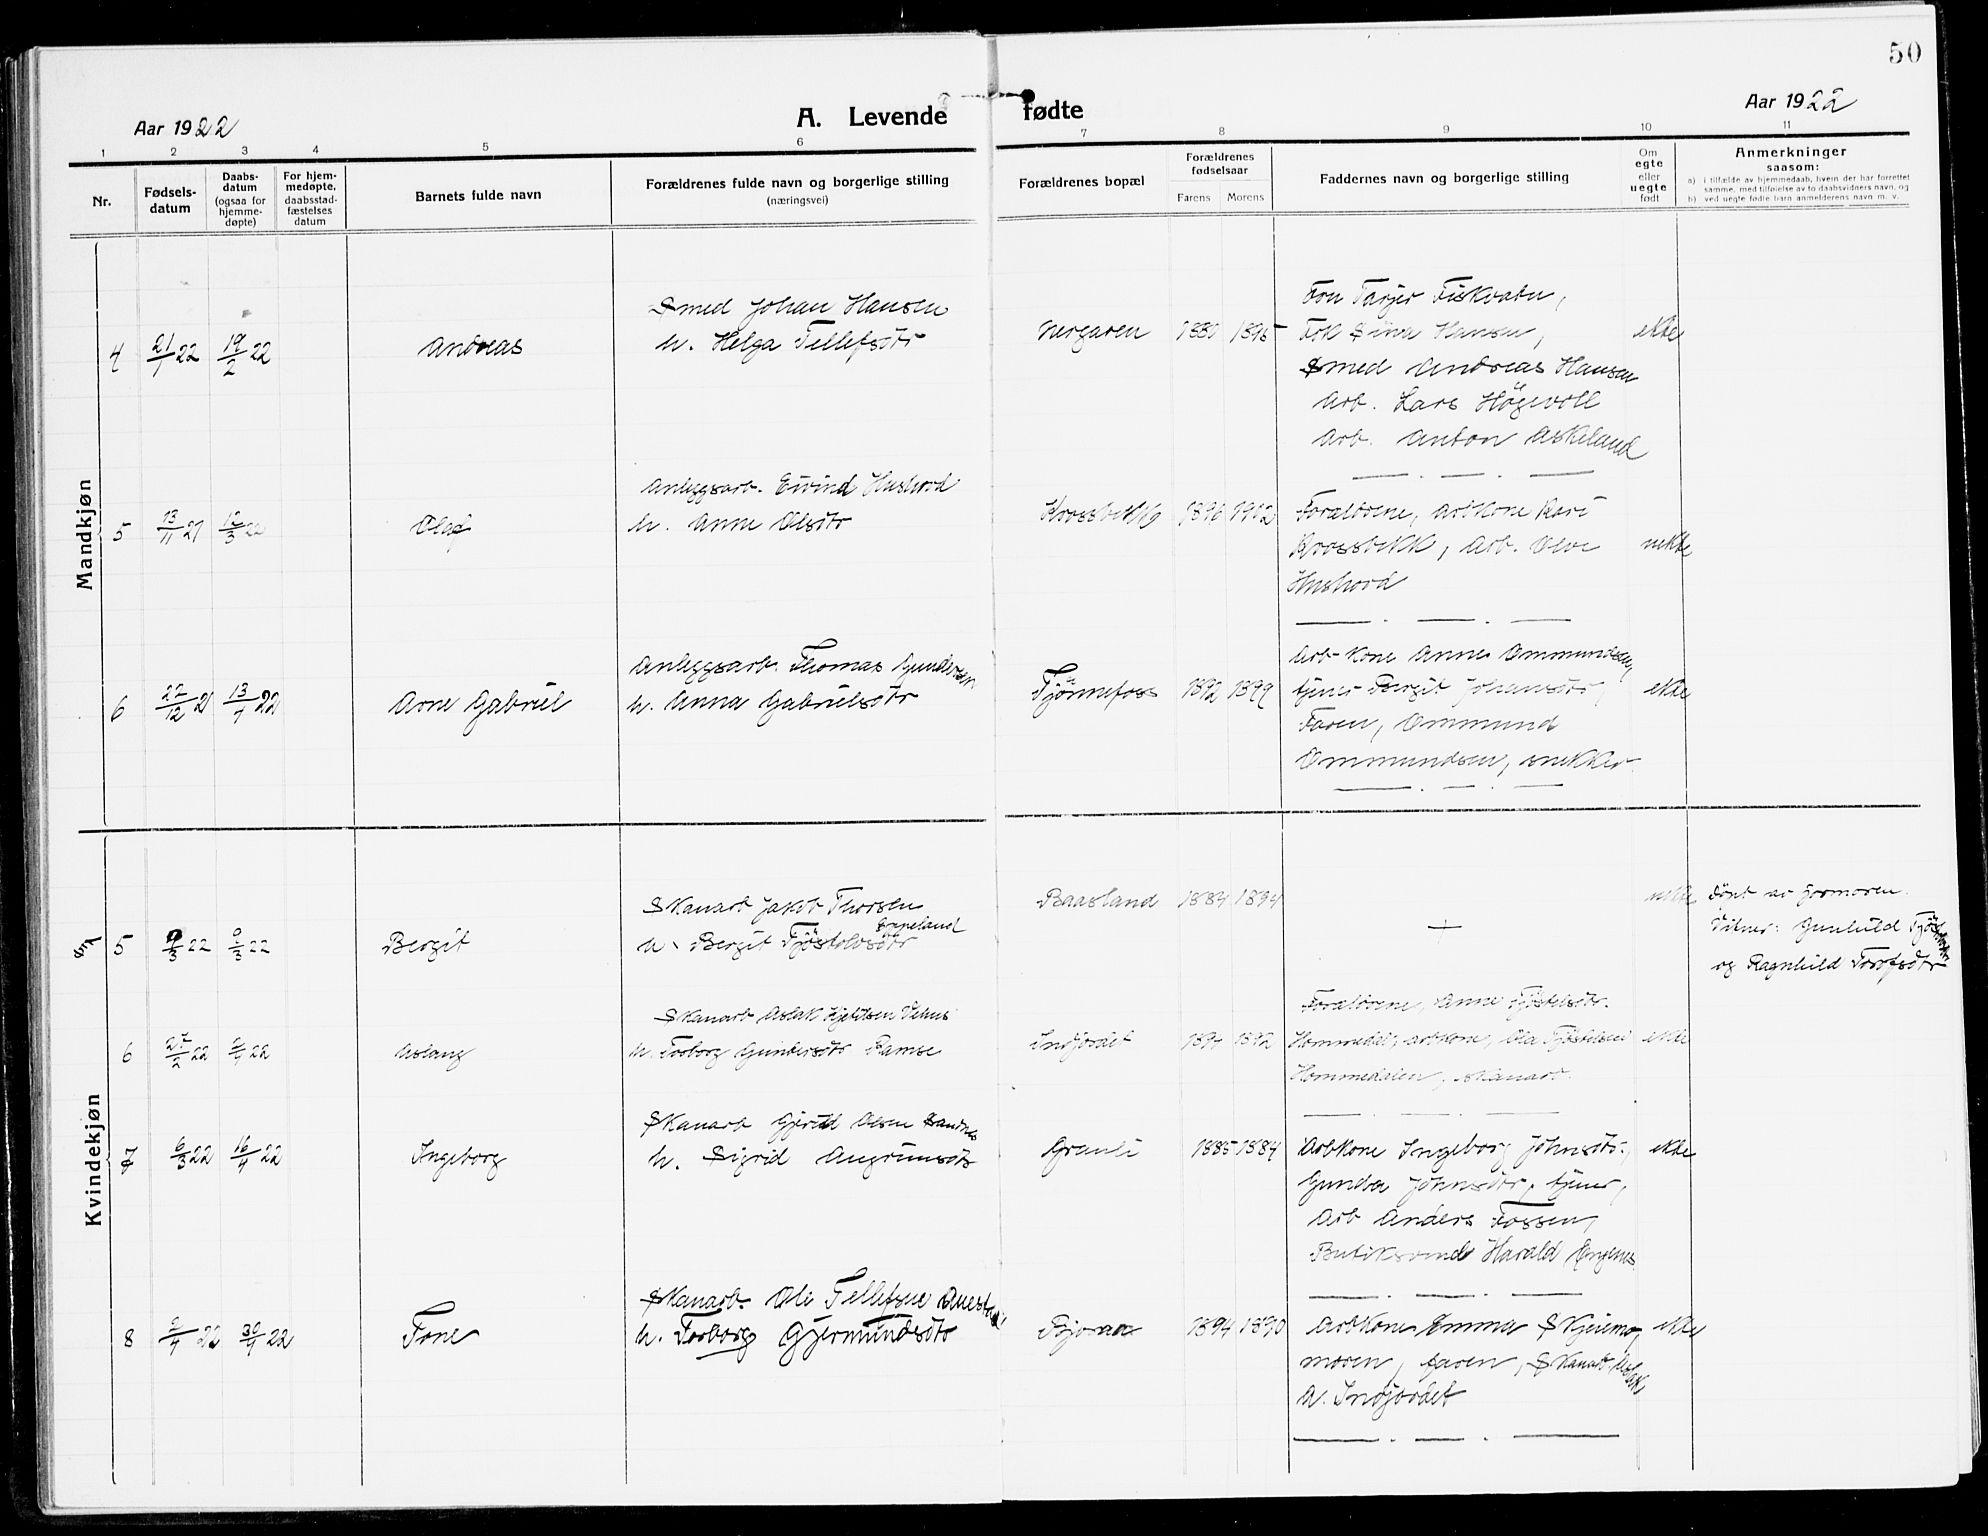 50
Aar 1922
A. Levende fødte
Aar 1922
1 2 3 4 5 6 7 8 9 10 11
Nr.
Fødsels-
datum
Daabs-
datum
(ogsaa for
hjemme-
døpte)
For hjem-
medøpte,
daabsstad-
fæstelses
datum
Barnets fulde navn
Forældrenes fulde navn og borgerlige stilling
(næringsvei)
Forældrenes bopæl
Forældrenes
fødselsaar
Farens Morens
Faddernes navn og borgerlige stilling
Om
egte
eller
uegte
født
Anmerkninger
saasom:
a) i tilfælde av hjemmedaab, hvem der har forrettet
samme, med tilføielse av to daabsvidners navn, og
b) ved uegte fødte barn anmelderens navn m. v.
Mandkjøn
4 21/1 22 19/2 22 Andreas
Smed Johan Hansen
h. Helga Tellefsdtr
1880 1895
Fru Tarjer Fiskvatn,
Hansen,
Smed Andreas Hansen
Arb. Lars Høgevoll
Arb. Anton Askeland
ekte
5 13/11 21 12/3 22 Olaf
Anleggsarb. Eivind Hushovd
h. Anne Olsdtr
1896 1902
Foreldrene, arbkone Kari
Krossbekk, Arb. Olve
Hushovd
uekte
6 22/12 21 13/7 22 Arne Gabriel
Anleggsarb. Thomas Gundersen
h. Anna Gabrielsdtr
Tjønnefoss 1892 1899
Arb-kone Anne Ommundsen,
tjener Bergit Johansdtr,
Faren, Ommund
Ommundsen, snekker
ekte
Kvindekjøn
5 22 22 Bergit
Skauarb Jakob Thorsen
h. Bergit Tjøstolvsdtr
Baasland 1884 1894
+
uekte
Døpt av jormoren.
Vitner: Gunhild
og Ragnhild
6 22 22 Aslaug
Skauarb Aslak Kjetilsen
h. Torborg Gundersdtr Ramse
Indjordet 1892
Foreldrene, Anne
Hommedal, arbkone, Ola Tjøstelsen
Hommedalen, skauarb.
ekte
7 6/3 22 16/4 22 Ingeborg
Skauarb Gjerulf Olsen Sandnes
h. Sigrid
Granli 1885 1884
Arbkone Ingeborg Johnsdtr,
Gunda Johnsdtr, tjener,
Arb Anders Fossen,
Harald
ekte
8 2/4 22 30/4 22 Tone
Skauarb. Ole Tellefsen
h. Torborg Gjermundsdtr
Bjoraa 1894 1890
Arbkone Emma Skjeimo,
moren, faren, Skauarb. Aslak
Indjordet
ekte